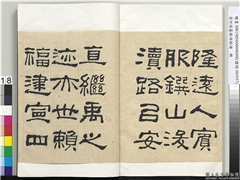 隆遠人賓
服鐉山浚
瀆路以安
直繼禹之
迹亦世賴
福建寧四
18